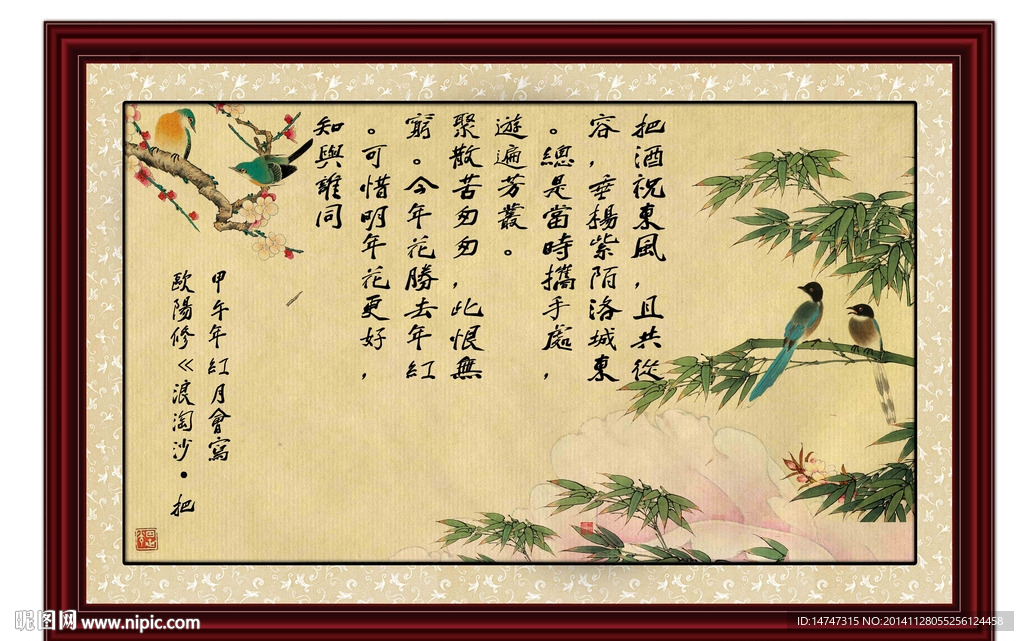 把酒祝東風，且共從
容，垂楊紫陌洛城東
。總是當時攜手處，
遊遍芳叢。
聚散苦匆匆，此恨無
窮。今年花勝去年紅
。可惜明年花更好，
知與誰同
甲午年紅月會寫
歐陽修《浪淘沙·把
昵图网 www.nipic.com
ID:14747315 NO:20141128055256124458